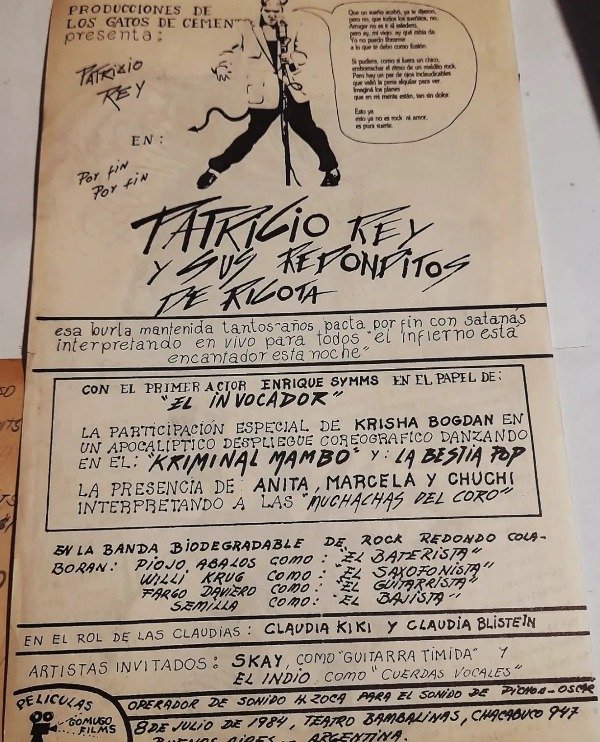 PRODUCCIONES DE
LOS GATOS DE CEMENTO
presenta:
PATRICIO
REY
EN:
Por fin
Por fin
Que un sueño acabó, ya te dijeron,
pero no, que todos los sueñitos, no.
Arrugar no es ir al saladero,
pero ay, mi viejo, ay qué rabia da.
Yo no puedo librarme
a lo que te debo como fusión.
Si pudiera, como si fuera un cinco,
emborrachar el ritmo de un maldito rock.
Pero hay un par de ojos inclaudicables
que valió la pena alquilar para ver.
Imaginá los planes
que en mi mente están, tan sin dolor.
Esto ya
esto ya no es rock ni amor,
es pura suerte.
PATRICIO REY
Y SUS REDONDITOS
DE RICOTA
esa burla mantenida tantos años pacta por fin con satanas
interpretando en vivo para todos "el infierno está
encantador esta noche"
CON EL PRIMER ACTOR ENRIQUE SYMMS EN EL PAPEL DE:
"EL INVOCADOR"
LA PARTICIPACIÓN ESPECIAL DE KRISHA BOGDAN EN
UN APOCALÍPTICO DESPLIEGUE COREOGRAFICO DANZANDO
EN EL: "KRIMINAL MAMBO" Y: LA BESTIA POP
LA PRESENCIA DE: ANITA, MARCELA Y CHUCHI
INTERPRETANDO A LAS "MUCHACHAS DEL CORO"
EN LA BANDA BIODEGRADABLE DE ROCK REDONDO COLA-
BORAN: PIOJO ABALOS COMO: "EL BATERISTA"
WILLI KRUG COMO: "EL SAXOFONISTA"
FARGO DAVIERO COMO: "EL GUITARRISTA"
SEMILLA COMO: "EL BAJISTA"
EN EL ROL DE LAS CLAUDIAS: CLAUDIA KIKI Y CLAUDIA BLISTEIN
ARTISTAS INVITADOS: SKAY, COMO "GUITARRA TIMIDA" Y
EL INDIO, COMO "CUERDAS VOCALES"
PELICULAS
GOMUGO
FILMS
OPERADOR DE SONIDO H. ZOCA PARA EL SONIDO DE PICHON-OSCAR
8 DE JULIO DE 1984, TEATRO BAMBALINAS, CHACABUCO 947
BUENOS AIRES - ARGENTINA.